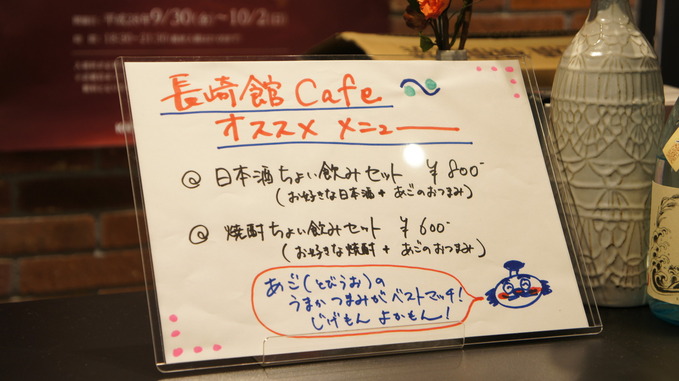 9/30(金)～10/2(日)
長崎館 Cafe
オススメ メニュー
日本酒ちょい飲みセット ¥800-
(お好きな日本酒 + あごのおつまみ)
焼酎ちょい飲みセット ¥600-
(お好きな焼酎 + あごのおつまみ)
あご(とびうお)の
うまかつまみがベストマッチ!
じげもん よかもん!